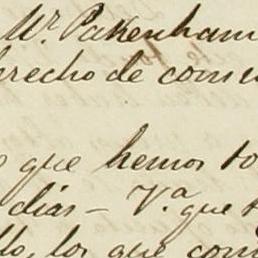 Mr. Pakenham
derecho de com
que hemos to
dias – V.a que
llo, los que com